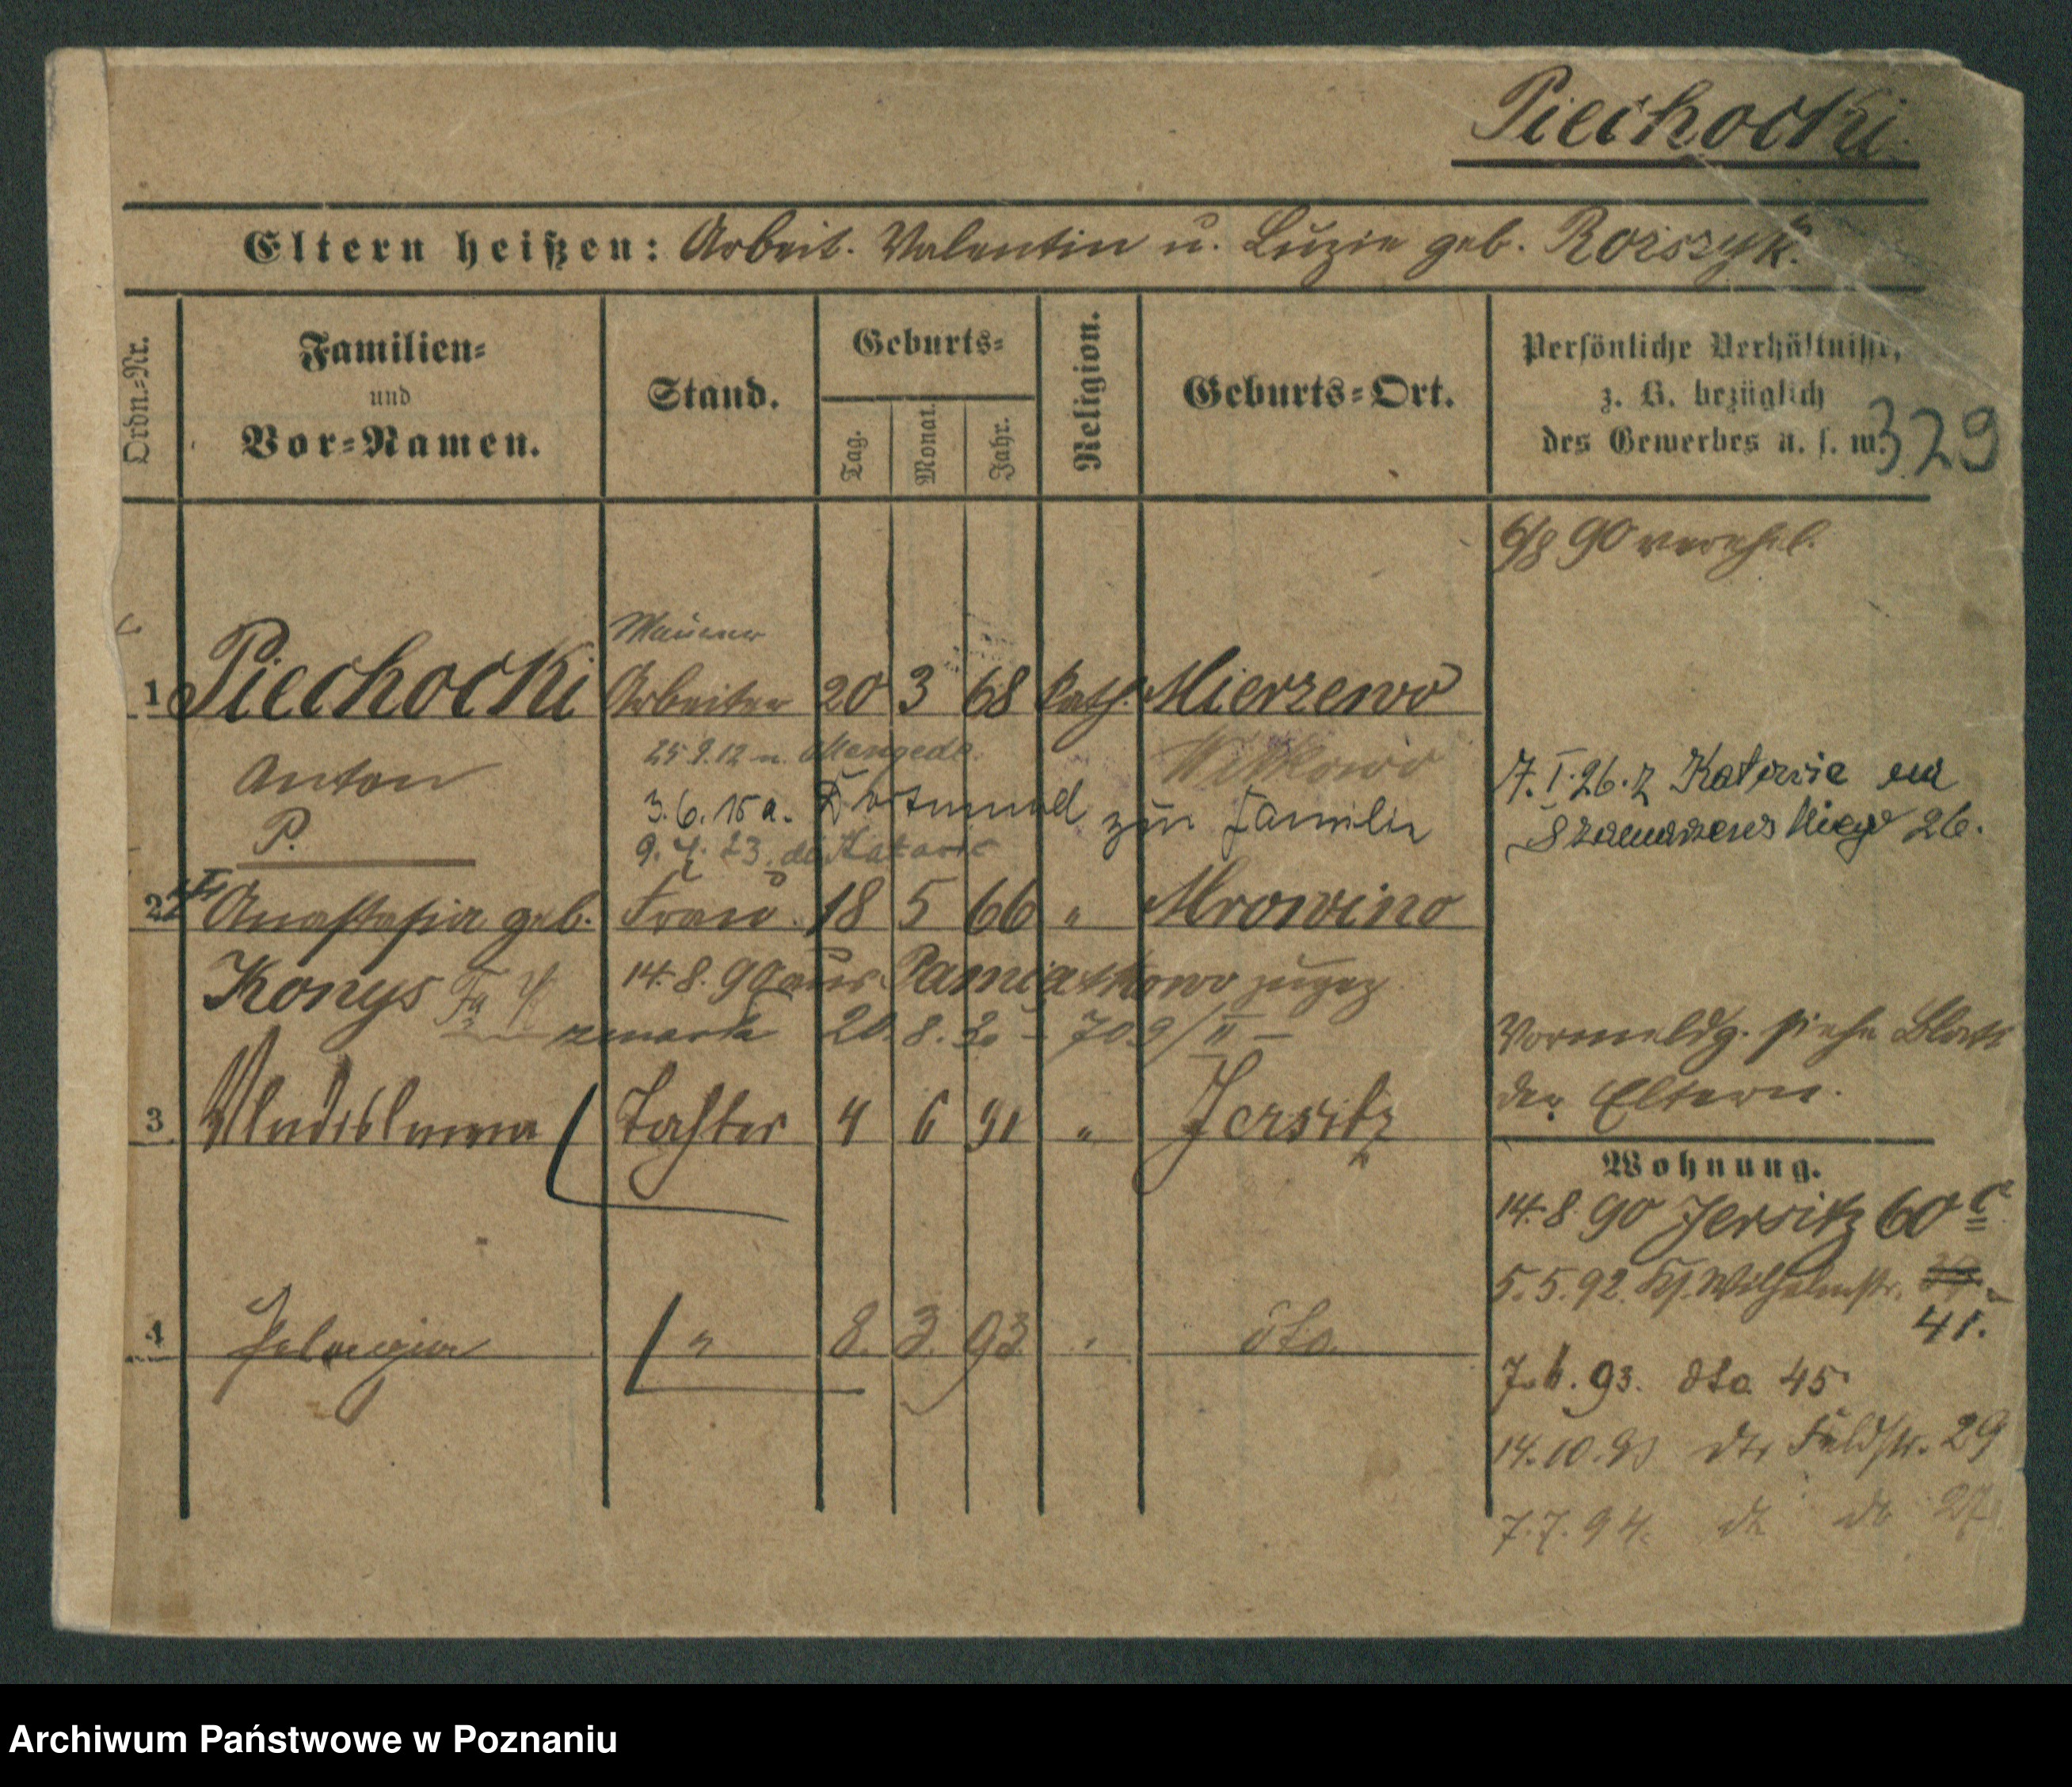 Piechocki.
Eltern heißen: Arbeit. Valentin u. Luzie geb. Roiszyk.
Ordn.=Nr.
Familien=
und
Vor=Namen.
Stand.
Geburts=
Tag.
Monat.
Jahr.
Religion.
Geburts=Ort.
Persönliche Verhältnisse,
z. B. bezüglich
des Gewerbes u. s. w.
329
6/8 90 verehel.
Maurer
1 Piechocki Arbeiter 20 3 68 kath. Mierzewo
Anton
25.9.12 n. Mengede.
Witkowo
P.
3.6.15 a. Dortmund zur Familie
9. 23. Katowic
7.I.26. z Katowic
26.
2 Anastasia geb. Frau 18 5 66 " Mrowino
Konys
14.8.90 aus Pamiatkowo zugez
zmarła 20.8.30 - 709/II -
Vormeldg. siehe Blatt
der Eltern.
3 Wladislawa Tochter 4 6 91 " Jersitz
Wohnung.
14.8 90 Jersitz 60 c
5.5.92. Wilhelmstr.
41.
4 Pelagia " 8. 3. 93 " dto.
7.6.93. dto 45
14.10.93 dto Feldstr. 29
7.7.94. do 27